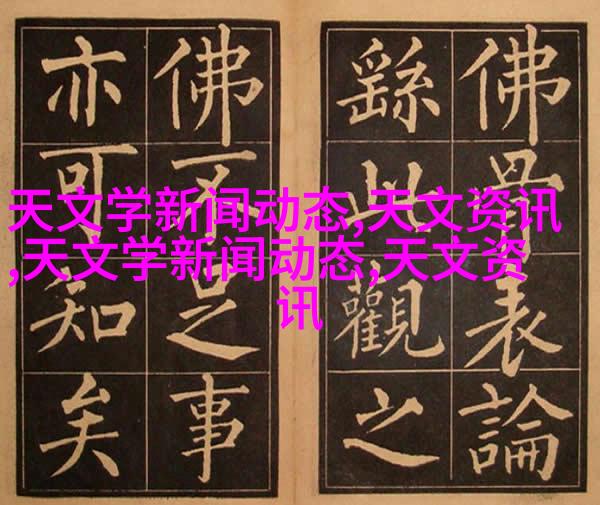 天文学新闻动态,天文资讯
,天文学新闻动态,天文资
讯
佛骨表論
繇此觀之
佛不足事
亦可知矣